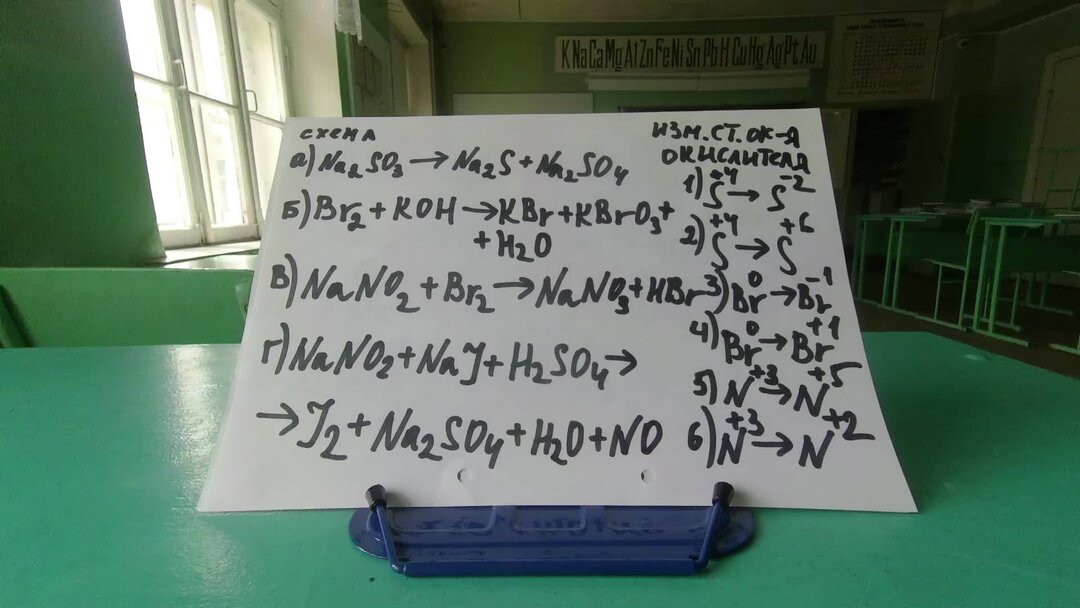 K Na Ca Mg Al Zn Fe Ni Sn Pb H Cu Hg Ag Pt Au
схема
а) Na₂SO₃ → Na₂S + Na₂SO₄
Б) Br₂ + KOH → KBr + KBrO₃ +
+ H₂O
В) NaNO₂ + Br₂ → NaNO₃ + HBr
г) NaNO₂ + NaJ + H₂SO₄ →
→ J₂ + Na₂SO₄ + H₂O + NO
изм. ст. ок-я
окислителя
1) S⁺⁴ → S⁻²
2) S⁺⁴ → S⁺⁶
3) Br⁰ → Br⁻¹
4) Br⁰ → Br⁺¹
5) N⁺³ → N⁺⁵
6) N⁺³ → N⁺²